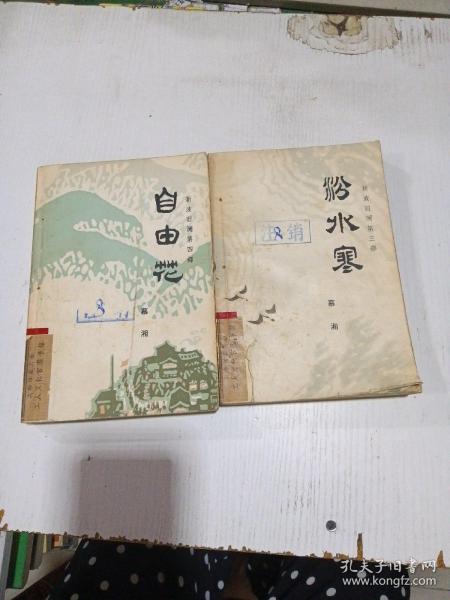 自由花
新波旧澜第四部
慕湘
工人文化宫图书馆
汾水寒
新波旧澜第三部
慕湘
注销
孔夫子旧书网
www.kongfz.com